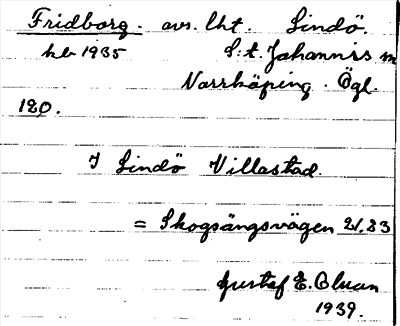 Fridborg. avs. lht. Lindö.
kb 1935 S:t. Johannis
Norrköping. Ögl.
120.
I Lindö Villastad.
= Skogsängsvägen 21.23
Gustaf E.
1939.